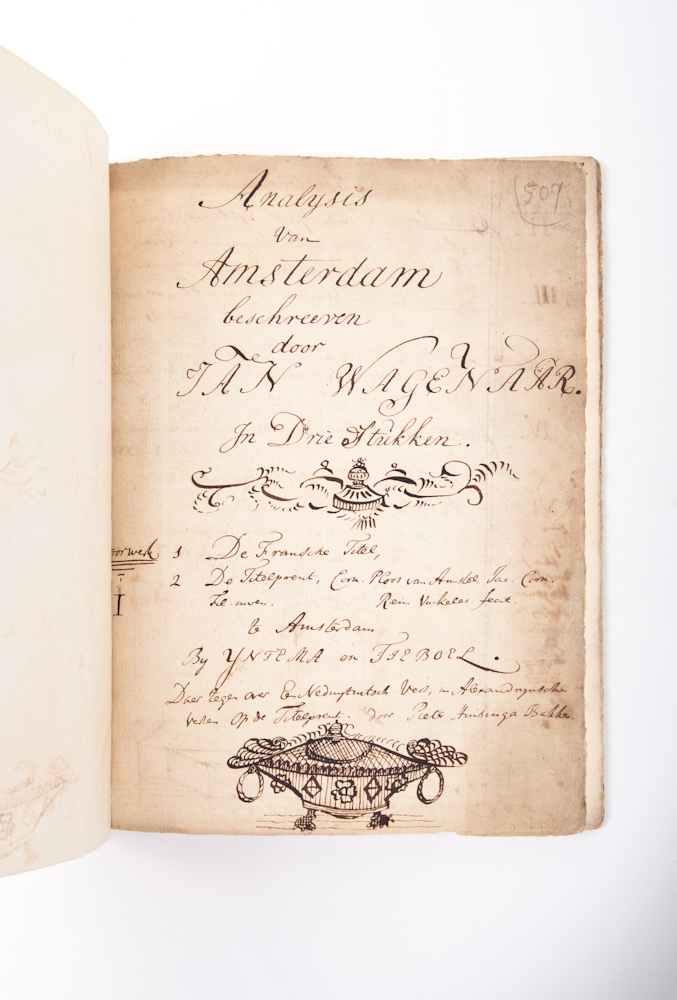 509.
Analysis
van
Amsterdam
beschreeven
door
JAN WAGENAAR.
In Drie Stukken.
Voorwerk 1 De Fransche Titel,
I
2 De Titelprent, Corn. Ploos van Amstel Jac. Corn.
Fil. inven. Rein. Vinkeles fecit.
te Amsterdam
By YNTEMA en TIEBOEL.
Daar tegen over Een Nederduitsch Vers, in Alexandrynsche
versen Op de Titelprent. door Pieter Huisinga Bakker.